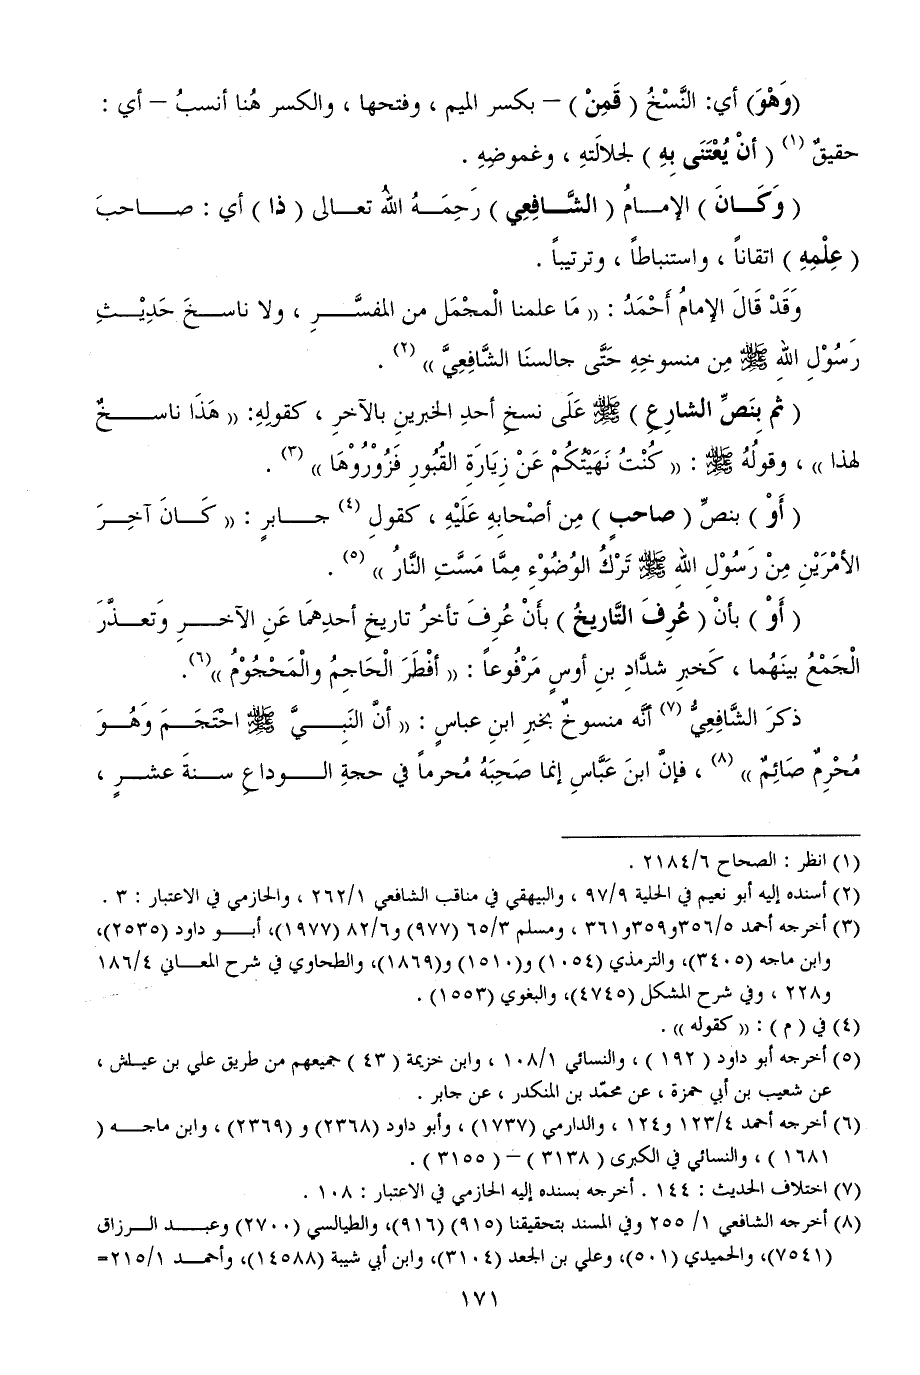 (وَهْوَ) أي: النَّسْخُ ( قَمِنْ ) – بكسر الميم ، وفتحها ، والكسر هُنا أنسبُ – أي :
حقيقٌ (١) ( أنْ يُعْتَنَى بِهِ ) لجلالَتهِ ، وغموضِهِ .
( وَكَانَ ) الإمامُ ( الشَّافِعِي ) رَحِمَهُ اللهُ تعالى ( ذا ) أي : صاحبَ
( عِلْمِهِ ) اتقاناً ، واستنباطاً ، وترتيباً .
وَقَدْ قَالَ الإمامُ أَحْمَدُ : (( مَا علمنا الْمجْمَل من المفسَّرِ ، ولا ناسخَ حَدِيْثِ
رَسُوْلِ اللهِ ﷺ مِن منسوخِهِ حَتَّى جالسنَا الشَّافِعِيَّ )) (٢) .
( ثم بِنَصِّ الشارِعِ ) ﷺ عَلَى نسخِ أحدِ الخبرينِ بالآخرِ ، كقولِهِ: (( هَذَا ناسخٌ
لهذا )) ، وقولُهُ ﷺ : (( كُنْتُ نَهَيْتُكُمْ عَنْ زِيَارَةِ القُبُورِ فَزُوْرُوْهَا )) (٣) .
( أَوْ ) بنصِّ ( صاحبٍ ) مِن أصْحابِهِ عَلَيْهِ ، كقولِ (٤) جابرٍ : (( كَانَ آخِرَ
الأمْرَيْنِ مِنْ رَسُوْلِ اللهِ ﷺ تَرْكُ الوُضُوْءِ مِمَّا مَسَّتِ النَّارُ )) (٥) .
( أَوْ ) بأنْ ( عُرِفَ التَّاريخُ ) بأنْ عُرِفَ تأخرُ تاريخِ أحدِهمَا عَنِ الآخرِ وَتعذَّرَ
الْجَمْعُ بينَهُما ، كَخبرِ شدَّاد بنِ أوسٍ مَرْفُوعاً : (( أفْطَرَ الْحَاجِمُ والْمَحْجُوْمُ ))(٦).
ذكرَ الشَّافِعِيُّ (٧) أنَّه منسوخٌ بخبرِ ابنِ عباسٍ : (( أنَّ النَبيَّ ﷺ احْتَجَمَ وَهُوَ
مُحْرِمٌ صَائِمٌ )) (٨) ، فإنَّ ابنَ عَبَّاسٍ إنما صَحِبَهُ مُحرماً في حجةِ الوداعِ سنةَ عشرٍ ،
(١) انظر : الصحاح ٢١٨٤/٦ .
(٢) أسنده إليه أبو نعيم في الحلية ٩٧/٩ ، والبيهقي في مناقب الشافعي ٢٦٢/١ ، والحازمي في الاعتبار : ٣ .
(٣) أخرجه أحمد ٣٥٦/٥و٣٥٩و٣٦١ ، ومسلم ٦٥/٣ (٩٧٧) و٨٢/٦ (١٩٧٧)، أبو داود (٢٥٣٥)،
وابن ماجه (٣٤٠٥)، والترمذي (١٠٥٤) و(١٥١٠) و(١٨٦٩)، والطحاوي في شرح المعاني ١٨٦/٤
و٢٢٨ ، وفي شرح المشكل (٤٧٤٥)، والبغوي (١٥٥٣) .
(٤) في ( م ) : (( كقوله )) .
(٥) أخرجه أبو داود ( ١٩٢ ) ، والنسائي ١٠٨/١ ، وابن خزيمة ( ٤٣ ) جميعهم من طريق علي بن عياش ،
عن شعيب بن أبي حمزة ، عن محمّد بن المنكدر ، عن جابر .
(٦) أخرجه أحمد ١٢٣/٤ و١٢٤ ، والدارمي (١٧٣٧) ، وأبو داود (٢٣٦٨) و (٢٣٦٩) ، وابن ماجه (
١٦٨١ ) ، والنسائي في الكبرى ( ٣١٣٨ ) – ( ٣١٥٥ ) .
(٧) اختلاف الحديث : ١٤٤ . أخرجه بسنده إليه الحازمي في الاعتبار : ١٠٨ .
(٨) أخرجه الشافعي ١/ ٢٥٥ وفي المسند بتحقيقنا (٩١٥) (٩١٦)، والطيالسي (٢٧٠٠) وعبد الرزاق
(٧٥٤١)، والحميدي (٥٠١)، وعلي بن الجعد (٣١٠٤)، وابن أبي شيبة (١٤٥٨٨)، وأحمد ٢١٥/١=
١٧١